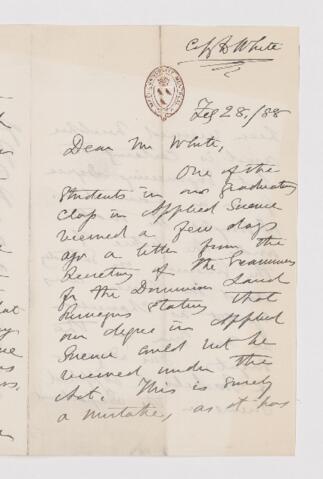 White
Feb 28, /88
Dear Mr White,
One of the
students in our graduating
class in Applied Science
received a few days
ago a letter from the
Secretary of the Examiners
for the Dominion Land
Surveyors stating that
our degree in Applied
Science could not be
received under the
Act. This is surely
a mistake, as it has